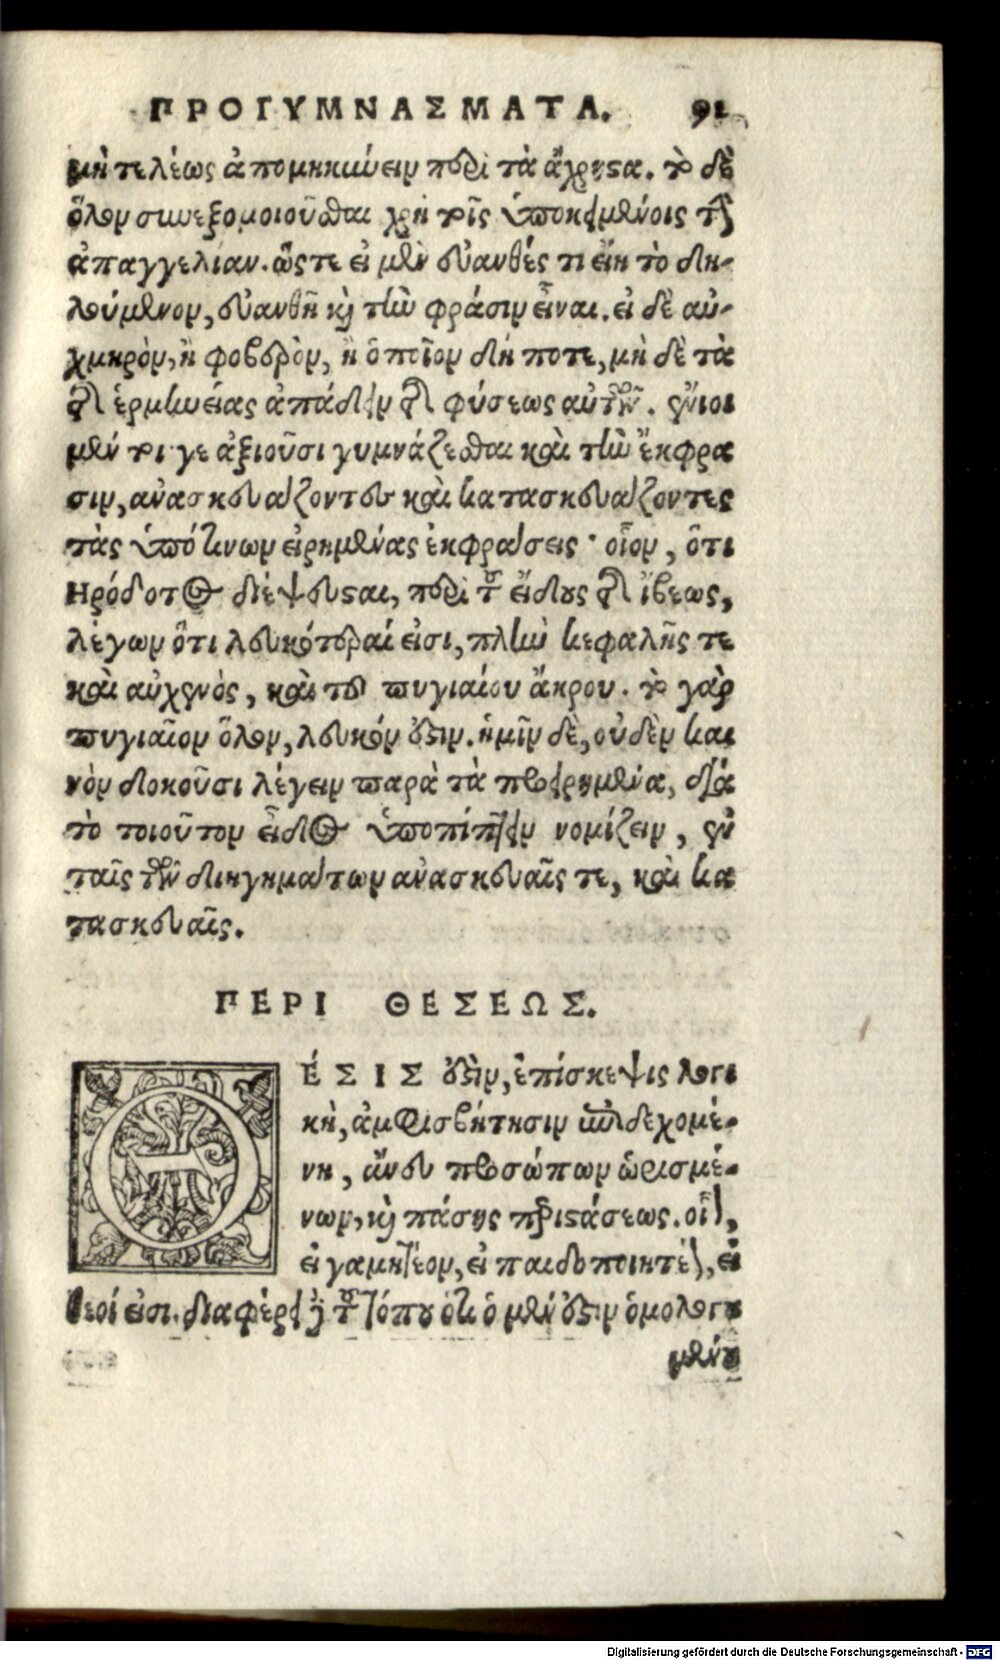 ΠΡΟΓΥΜΝΑΣΜΑΤΑ. 91
μὴ τελέως ἀπομηκύνειν περὶ τὰ ἄχρηστα. τὸ δὲ
ὅλον συνεξομοιοῦσθαι χρὴ τοῖς ὑποκειμένοις τὴν
ἀπαγγελίαν. ὥστε εἰ μὲν εὐανθές τι εἴη τὸ δη-
λούμενον, εὐανθῆ καὶ τὴν φράσιν εἶναι. εἰ δὲ αὐ-
χμηρὸν, ἢ φοβερὸν, ἢ ὁποῖον δή ποτε, μὴ δὲ τὰ
τῆς ἑρμηνείας ἀπάδειν τῆς φύσεως αὐτῶν. ἔνιοι
μέν τοι γε ἀξιοῦσι γυμνάζεσθαι καὶ τὴν ἔκφρα
σιν, ἀνασκευάζοντες καὶ κατασκευάζοντες
τὰς ὑπό τινων εἰρημένας ἐκφράσεις· οἷον, ὅτι
Ηρόδοτος διέψευσται, περὶ τοῦ εἴδους τῆς ἴβεως,
λέγων ὅτι λευκόπτεραί εἰσι, πλὴν κεφαλῆς τε
καὶ αὐχένὸς, καὶ τοῦ πυγιαίου ἄκρου. τὸ γὰρ
πυγιαῖον ὅλον, λευκόν ἐστιν. ἡμῖν δὲ, οὐδὲν και
νὸν δοκοῦσι λέγειν παρὰ τὰ προειρημένα, διὰ
τὸ τοιοῦτον εἶδος ὑποπίπτειν νομίζειν, ἐν
ταῖς τῶν διηγημάτων ἀνασκευαῖς τε, καὶ κα
τασκευαῖς.
ΠΕΡΙ ΘΕΣΕΩΣ.
ΘΈΣΙΣ ἐστὶν, ἐπίσκεψις λογι
κὴ, ἀμφισβήτησιν ἐπιδεχομέ-
νη, ἄνευ προσώπων ὡρισμέ-
νων, καὶ πάσης περιστάσεως. οἷον,
εἰ γαμητέον, εἰ παιδοποιητέον, εἰ
θεοί εἰσι. διαφέρει δὲ τοῦ τόπου ὅτι ὁ μέν ἐστιν ὁμολογου
μένου
Digitalisierung gefördert durch die Deutsche Forschungsgemeinschaft - DFG